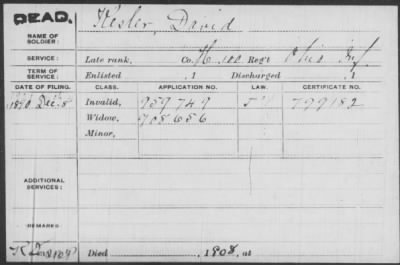 DEAD.
NAME OF SOLDIER: Kesler, David
SERVICE: Late rank, Co. H, 100 Reg't Ohio Inf.
TERM OF SERVICE: Enlisted , 1 Discharged , 1
DATE OF FILING. CLASS. APPLICATION NO. LAW. CERTIFICATE NO.
1890 Dec. 8 Invalid, 959749 799182
Widow, 908656
Minor,
ADDITIONAL SERVICES:
REMARKS:
Died , 1908, at